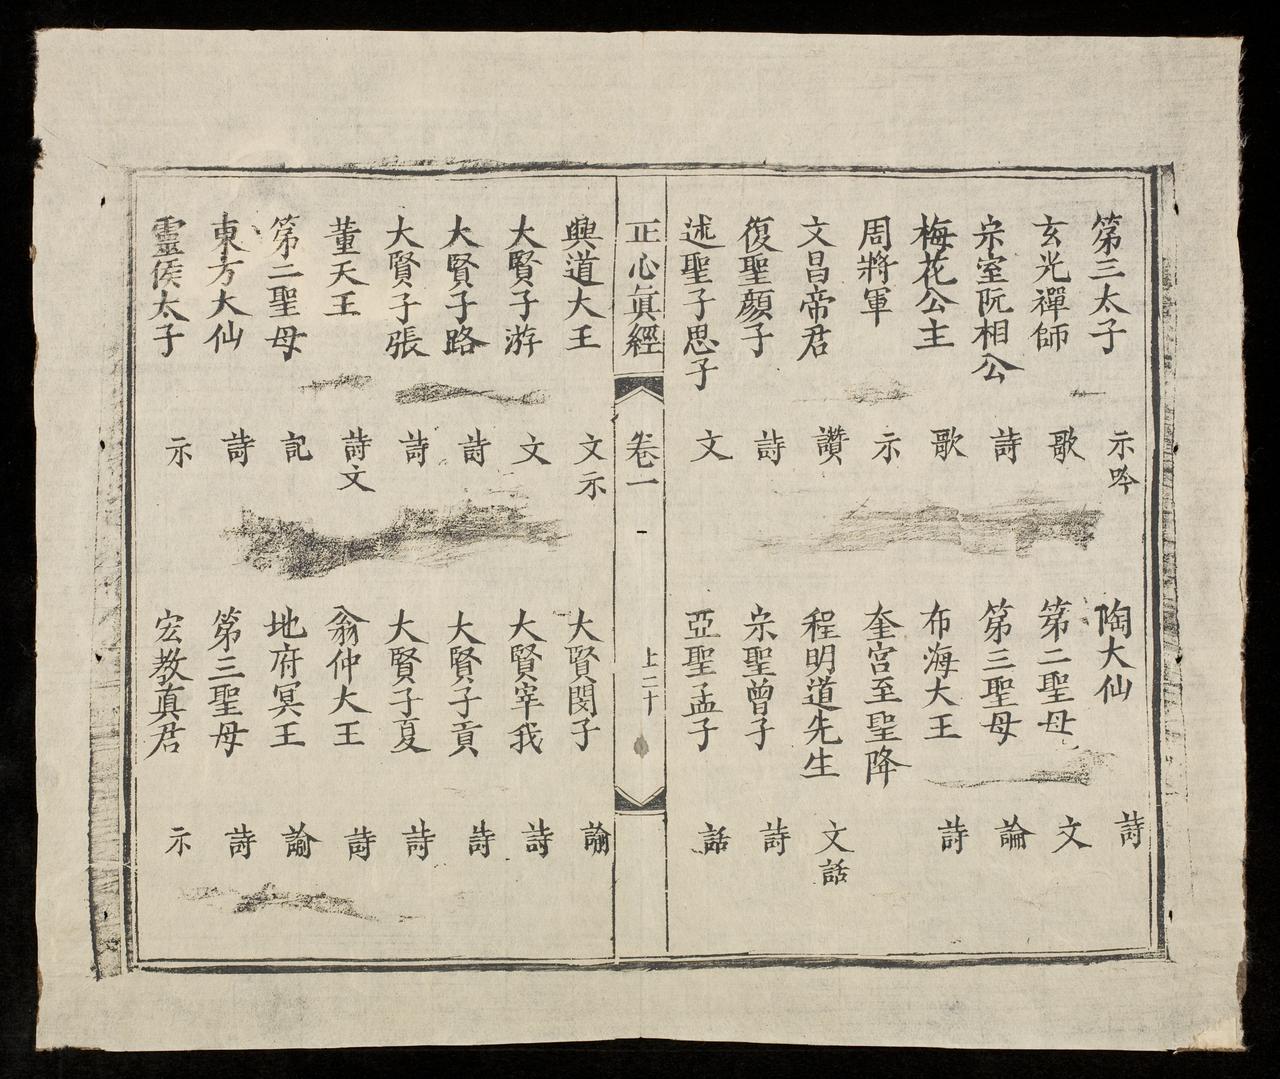 第三太子 示吟 陶大仙 詩
玄光禪師 歌 第二聖母 文
宗室阮相公 詩 第三聖母 論
梅花公主 歌 布海大王 詩
周將軍 示 奎宮至聖降
文昌帝君 讚 程明道先生 文話
復聖顏子 詩 宗聖曾子 詩
述聖子思子 文 亞聖孟子 話
正心眞經 卷一 上二十
興道大王 文示 大賢閔子 諭
大賢子游 文 大賢宰我 詩
大賢子路 詩 大賢子貢 詩
大賢子張 詩 大賢子夏 詩
董天王 詩文 翁仲大王 詩
第二聖母 記 地府冥王 諭
東方大仙 詩 第三聖母 詩
靈侯太子 示 宏教真君 示